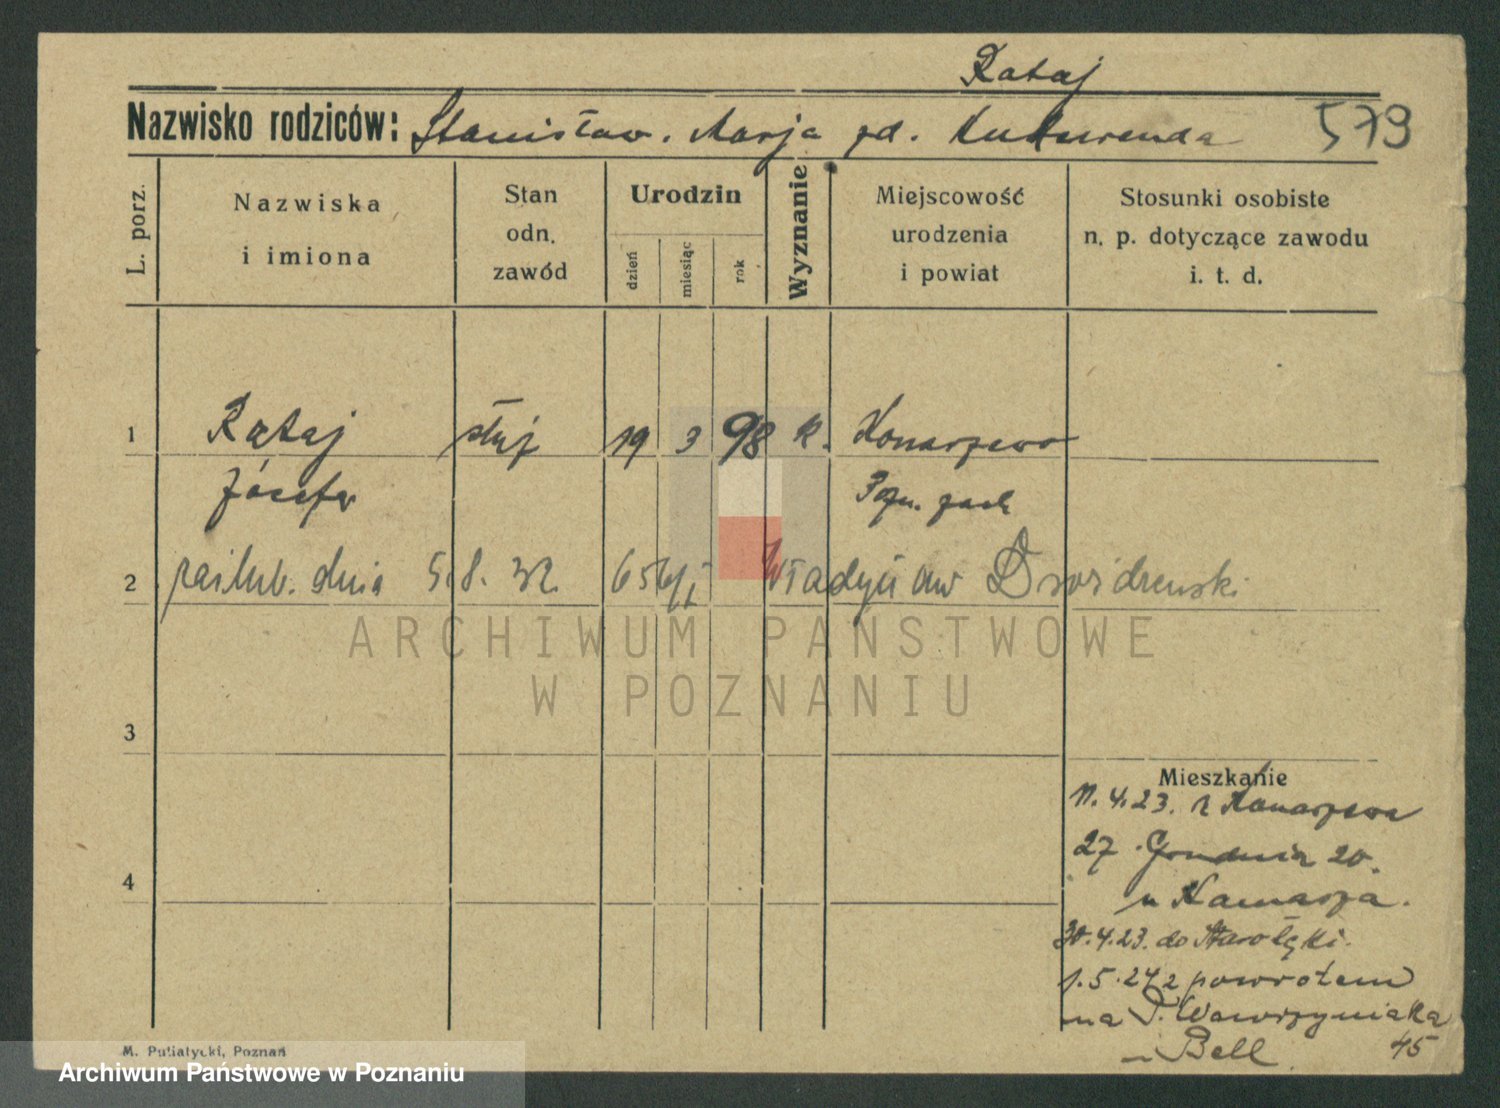 Rataj
Nazwisko rodziców: Stanisław. Marja zd. 579
L. porz.
Nazwiska
i imiona
Stan
odn.
zawód
Urodzin
dzień
miesiąc
rok
Wyznanie
Miejscowość
urodzenia
i powiat
Stosunki osobiste
n. p. dotyczące zawodu
i. t. d.
1 Rataj służ 19 3 98 k. Konarzewo
Józefa Pozn. zach
2 zaślub. dnia 5.8.32. Władysław
ARCHIWUM PAŃSTWOWE
W POZNANIU
3
Mieszkanie
11.4.23. z Konarzewa
27 Grudnia 20.
4
u
30.4.23. do Starołęki.
1.5.24 z powrotem
na P. Wawrzyniaka
Bell 45
M. Putiatycki, Poznań
Archiwum Państwowe w Poznaniu